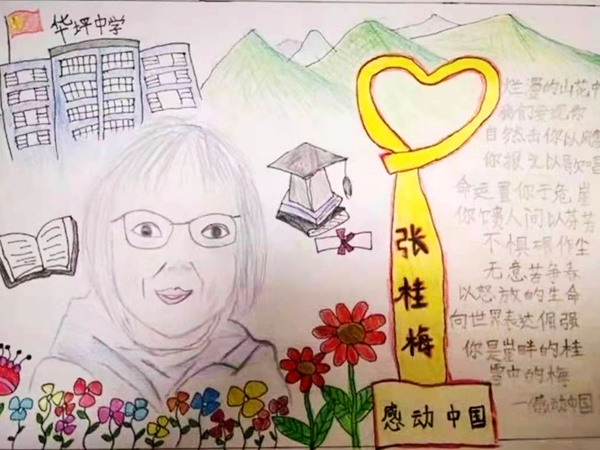 华坪中学
张桂梅
感动中国
烂漫的山花中
我们发现你
自然击你以风
你报之以歌唱
命运置你于危崖
你馈人间以芬芳
不惧碾作尘
无意苦争春
以怒放的生命
向世界表达倔强
你是崖畔的桂
雪中的梅
—感动中国